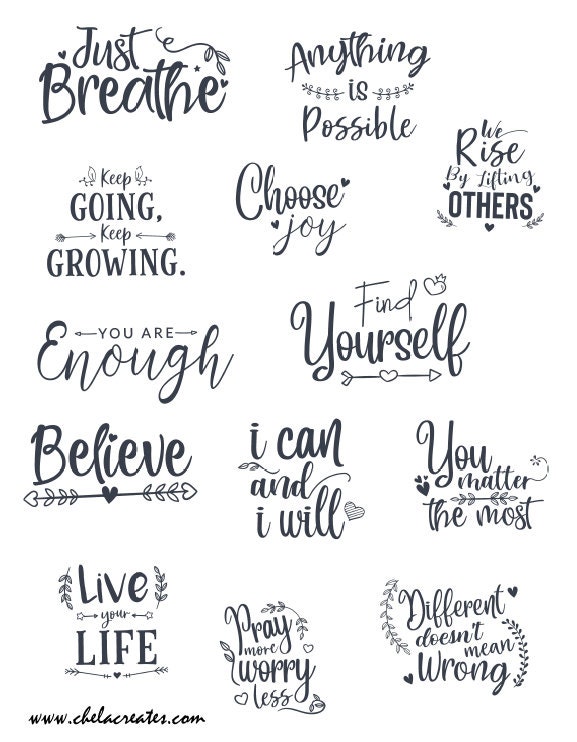 Just
Breathe
Anything
is
Possible
We
Rise
By Lifting
OTHERS
Keep
GOING,
Keep
GROWING.
Choose
joy
YOU ARE
Enough
Find
Yourself
Believe
i can
and
i will
You
matter
the most
Live
your
LIFE
Pray
more
worry
less
Different
doesn't
mean
Wrong
www.chelacreates.com